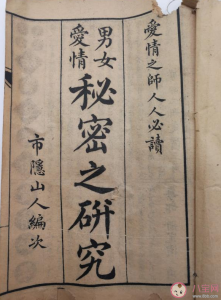 愛情之師人人必讀
男女愛情
秘密之研究
市隱山人編次